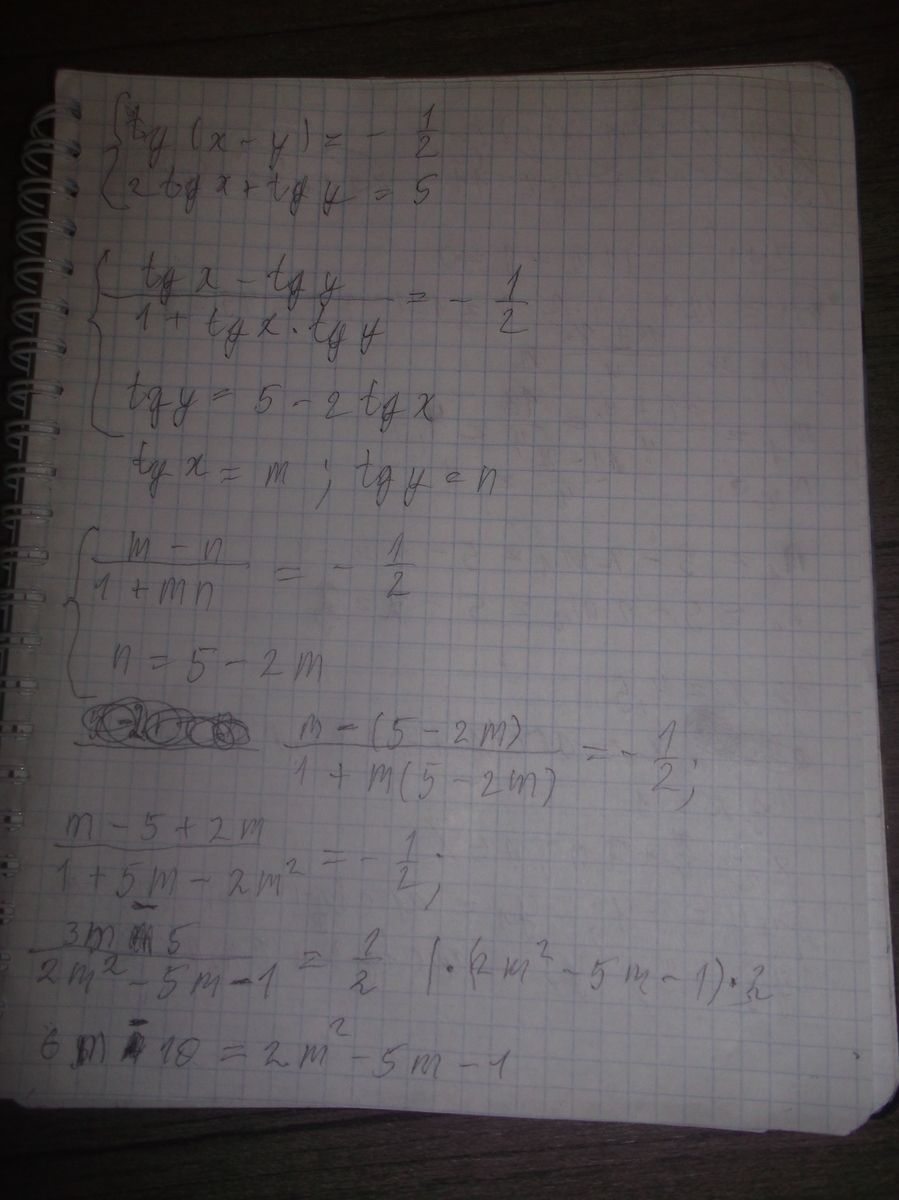 { tg (x - y) = - 1/2
2 tg x + tg y = 5
{ (tg x - tg y)/(1 + tg x · tg y) = - 1/2
tg y = 5 - 2 tg x
tg x = m ; tg y = n
{ (m - n)/(1 + mn) = - 1/2
n = 5 - 2m
(m - (5 - 2m))/(1 + m(5 - 2m)) = - 1/2 ;
(m - 5 + 2m)/(1 + 5m - 2m²) = - 1/2 ;
(3m - 5)/(2m² - 5m - 1) = 1/2 | · (2m² - 5m - 1) · 2
6m - 10 = 2m² - 5m - 1